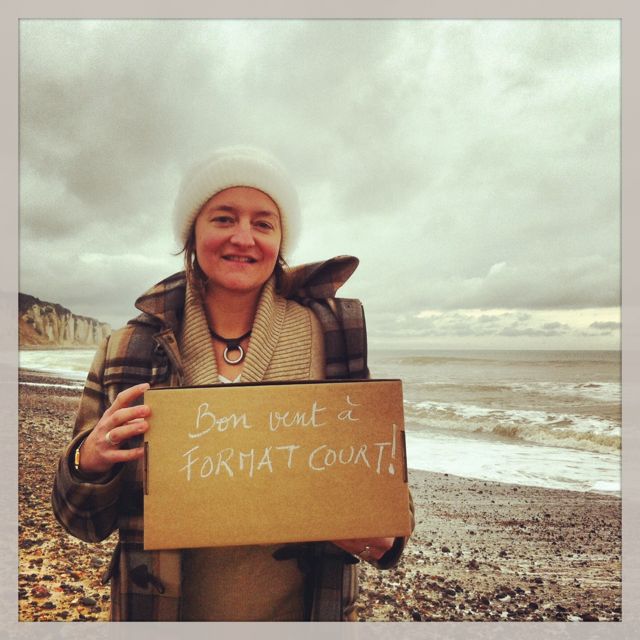 Bon vent à
FORMAT COURT!